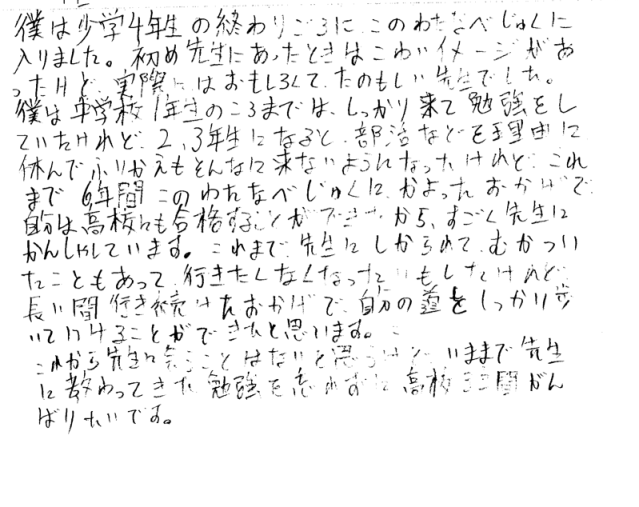 僕は少学4年生の終わりごろに、このわたなべじゅくに
入りました。初め先生にあったときはこわいイメージがあ
ったけど、実際にはおもしろくて、たのもしい先生でした。
僕は中学校1年生のころまでは、しっかり来て勉強をし
ていたけれど、2、3年生になると、部活などを理由に
休んでふりかえもそんなに来ないようになったけれど、これ
まで6年間このわたなべじゅくに、かよったおかげで
自分は高校にも合格することができたから、すごく先生に
かんしゃしています。これまで先生にしかられて、むかつい
たこともあって、行きたくなくなったりもしたけれど、
長い間行き続けたおかげで、自分の道をしっかり歩
いていけることができたと思います。
これから先生に会うことはないと思うけど、いままで先生
に教わってきた勉強を忘れずに高校3年間がん
ばりたいです。